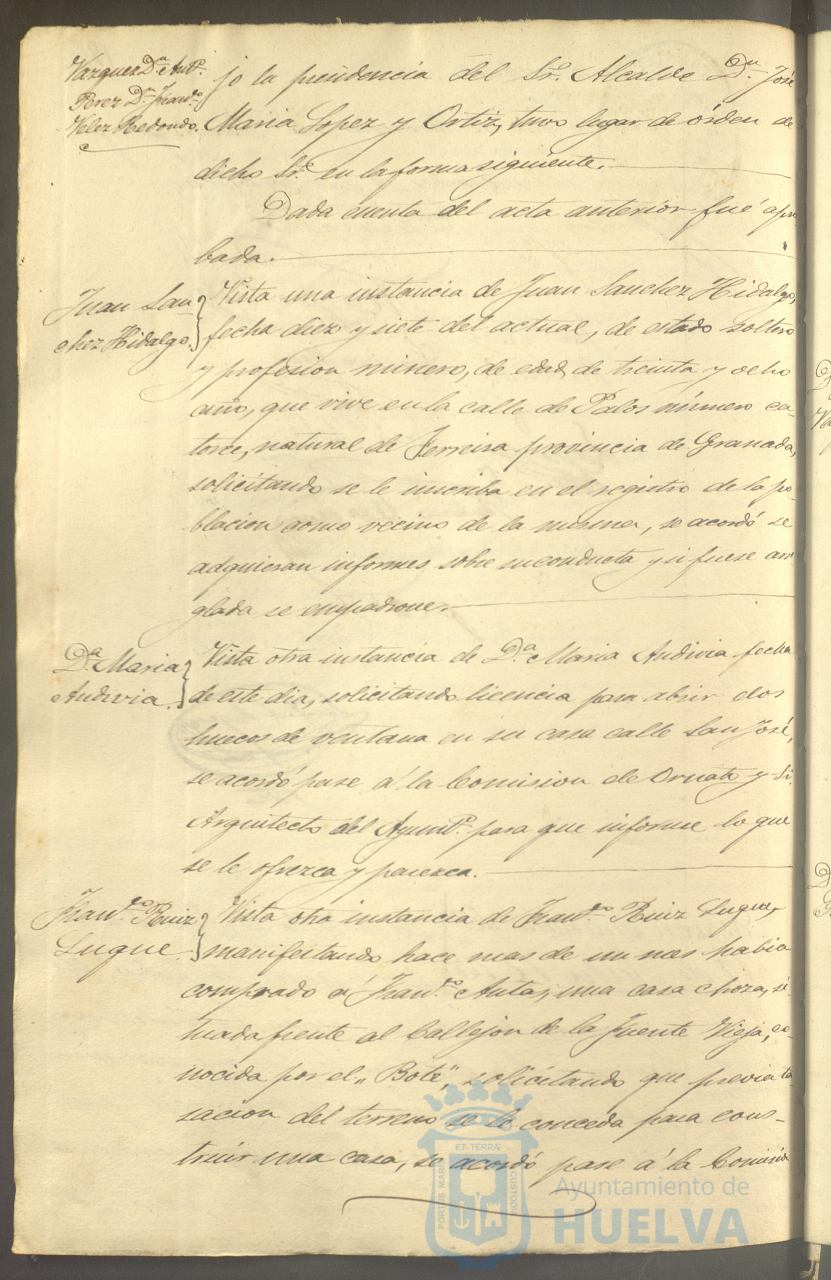 Vazquez D.ⁿ Ant.º
Perez D.ⁿ Fran.co
Velez Redondo.
jo la presidencia del Sr. Alcalde D.ⁿ José
Maria Lopez y Ortiz, tuvo lugar de órden de
dicho Sr. en la forma siguiente.
Dada cuenta del acta anterior fué apro
bada.
Juan San
chez Hidalgo.
Vista una instancia de Juan Sanchez Hidalgo,
fecha diez y siete del actual, de estado soltero
y profesion minero, de edad de treinta y ocho
año, que vive en la calle de Palos número ca-
torce, natural de Ferreira provincia de Granada,
solicitando se le inscriba en el registro de la po-
blacion como vecino de la misma, se acordó se
adquieran informes sobre su conducta y si fuese arre
glada se empadrone.
D.ª Maria
Andivia.
Vista otra instancia de D.ª Maria Andivia fecha
de este dia, solicitando licencia para abrir dos
huecos de ventana en su casa calle San José,
se acordó pase á la Comision de Ornato y Sr.
Arquitecto del Ayunt.º para que informe lo que
se le ofrezca y parezca.
Fran.co Ruiz
Luque.
Vista otra instancia de Fran.co Ruiz Luque,
manifestando hace mas de un mes habia
comprado á Fran.co Anta, una casa choza, si-
tuada frente al Callejon de la Fuente Vieja, co-
nocida por el „Bote“, solicitando que previa ta
sacion del terreno se le conceda para cons-
truir una casa, se acordó pase á la Comision
PORTUS MARIS
ET TERRÆ
CUSTODIA
Ayuntamiento de
HUELVA